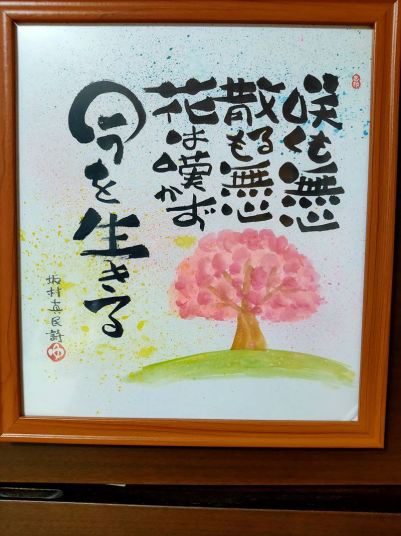 咲くも無心
散るも無心
花は嘆かず
今を生きる
坂村真民詩
ゆ